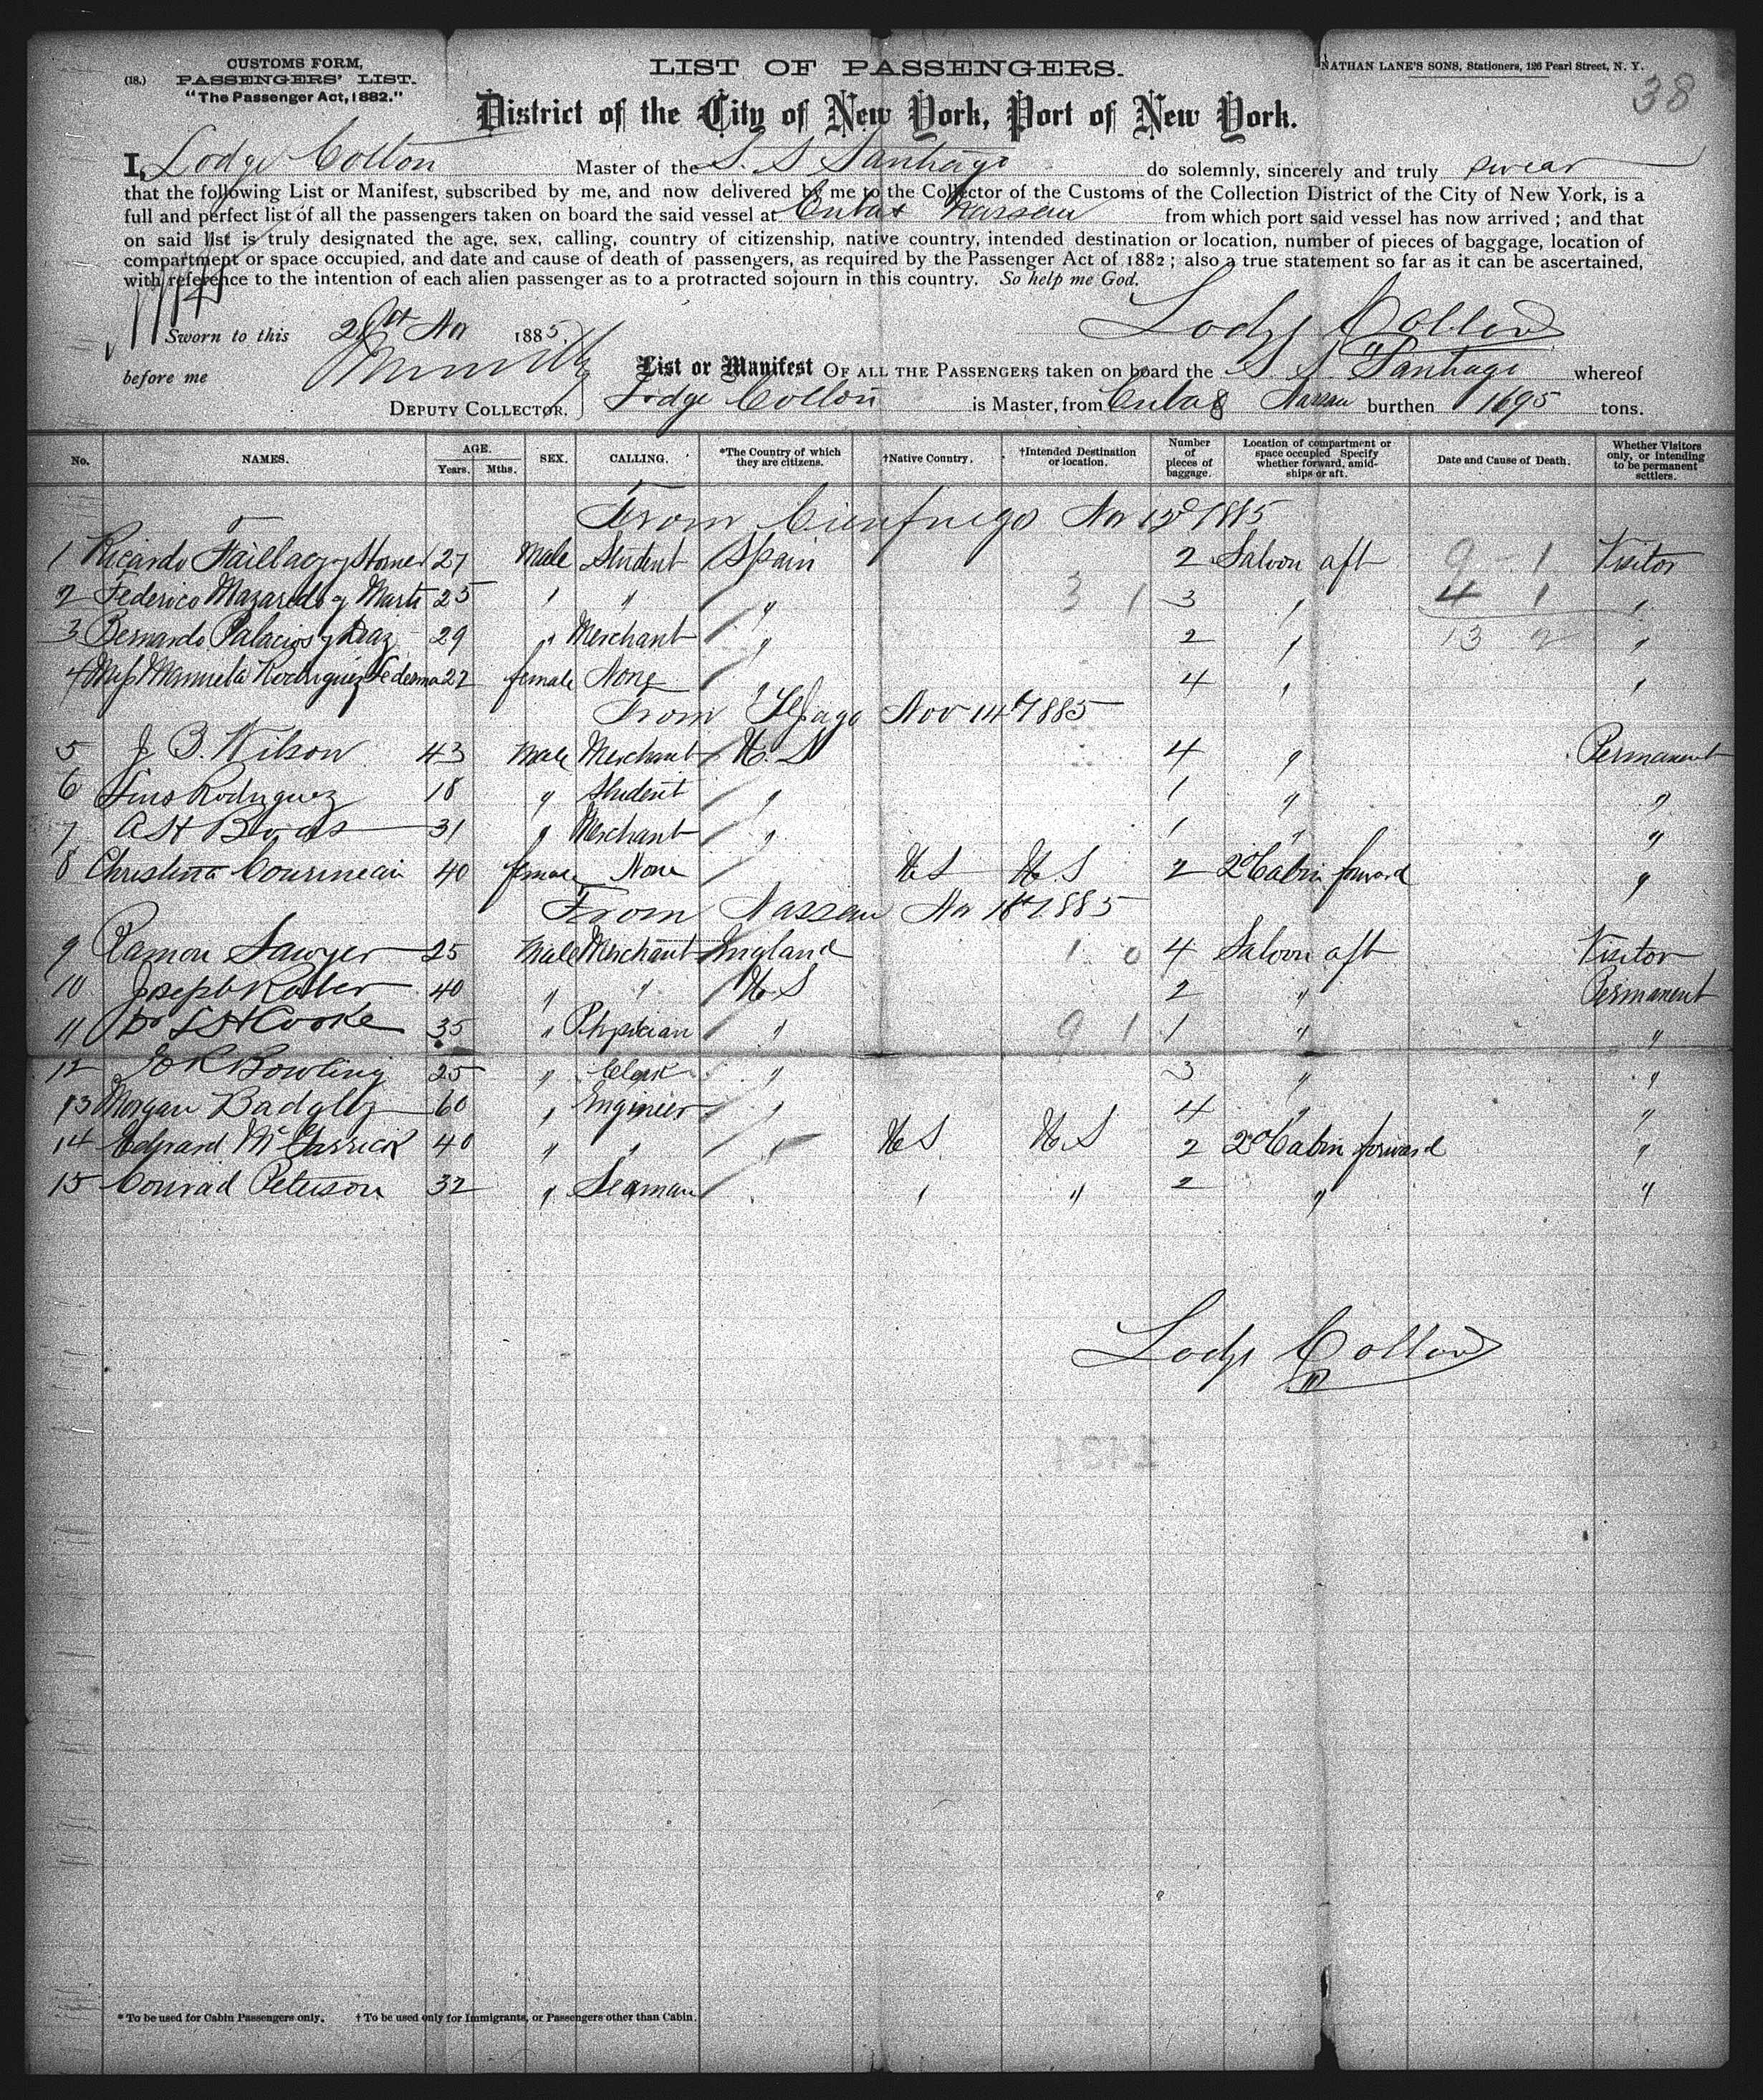 CUSTOMS FORM,
(18.) PASSENGERS' LIST.
"The Passenger Act, 1882."
LIST OF PASSENGERS.
NATHAN LANE'S SONS, Stationers, 126 Pearl Street, N. Y.
38
District of the City of New York, Port of New York.
I, Lodge Colton Master of the S. S Santiago do solemnly, sincerely and truly swear
that the following List or Manifest, subscribed by me, and now delivered by me to the Collector of the Customs of the Collection District of the City of New York, is a
full and perfect list of all the passengers taken on board the said vessel at Cuba & Nassau from which port said vessel has now arrived; and that
on said list is truly designated the age, sex, calling, country of citizenship, native country, intended destination or location, number of pieces of baggage, location of
compartment or space occupied, and date and cause of death of passengers, as required by the Passenger Act of 1882; also a true statement so far as it can be ascertained,
with reference to the intention of each alien passenger as to a protracted sojourn in this country. So help me God.
Lodge Colton
Sworn to this 21st Nov 1885
before me
DEPUTY COLLECTOR.
List or Manifest OF ALL THE PASSENGERS taken on board the S. S. Santiago whereof
Lodge Colton is Master, from Cuba & Nassau burthen 1695 tons.
No. NAMES. AGE. Years. Mths. SEX. CALLING. *The Country of which they are citizens. †Native Country. †Intended Destination or location. Number of pieces of baggage. Location of compartment or space occupied Specify whether forward, amidships or aft. Date and Cause of Death. Whether Visitors only, or intending to be permanent settlers.
From Cienfuego Nov 12 1885
1 Ricardo 27 Male Student Spain 2 Saloon aft 9 - 1 Visitor
2 Federico Mazaredo y Marti 25 " " " 3 1 3 " 4 1 "
3 Bernardo Palacios y Diaz 29 " Merchant " 2 " 13 2 "
4 Miss Manuela Rodriguez Ledesma 22 female None " 4 " "
From St Jago Nov 14th 1885
5 J B. Wilson 43 Male Merchant U. S 4 " Permanent
6 Rodriguez 18 " Student " 1 " "
7 A H 31 " Merchant " 1 " "
8 Christina 40 female None U S U. S 2 2d Cabin forward "
From Nassau Nov 18th 1885
9 Ramon Sawyer 25 Male Merchant England 1 0 4 Saloon aft Visitor
10 Joseph 40 " " U. S 2 " Permanent
11 Dr Cooke 35 " Physician " 9 1 1 " "
12 E R Bowling 25 " Clerk " 3 " "
13 Morgan Badgley 60 " Engineer " 4 " "
14 Edward McGarrick 40 " " " U S U. S 2 2d Cabin forward "
15 Conrad Peterson 32 " Seaman " " 2 " "
Lodge Colton
1424
* To be used for Cabin Passengers only. † To be used only for Immigrants, or Passengers other than Cabin.